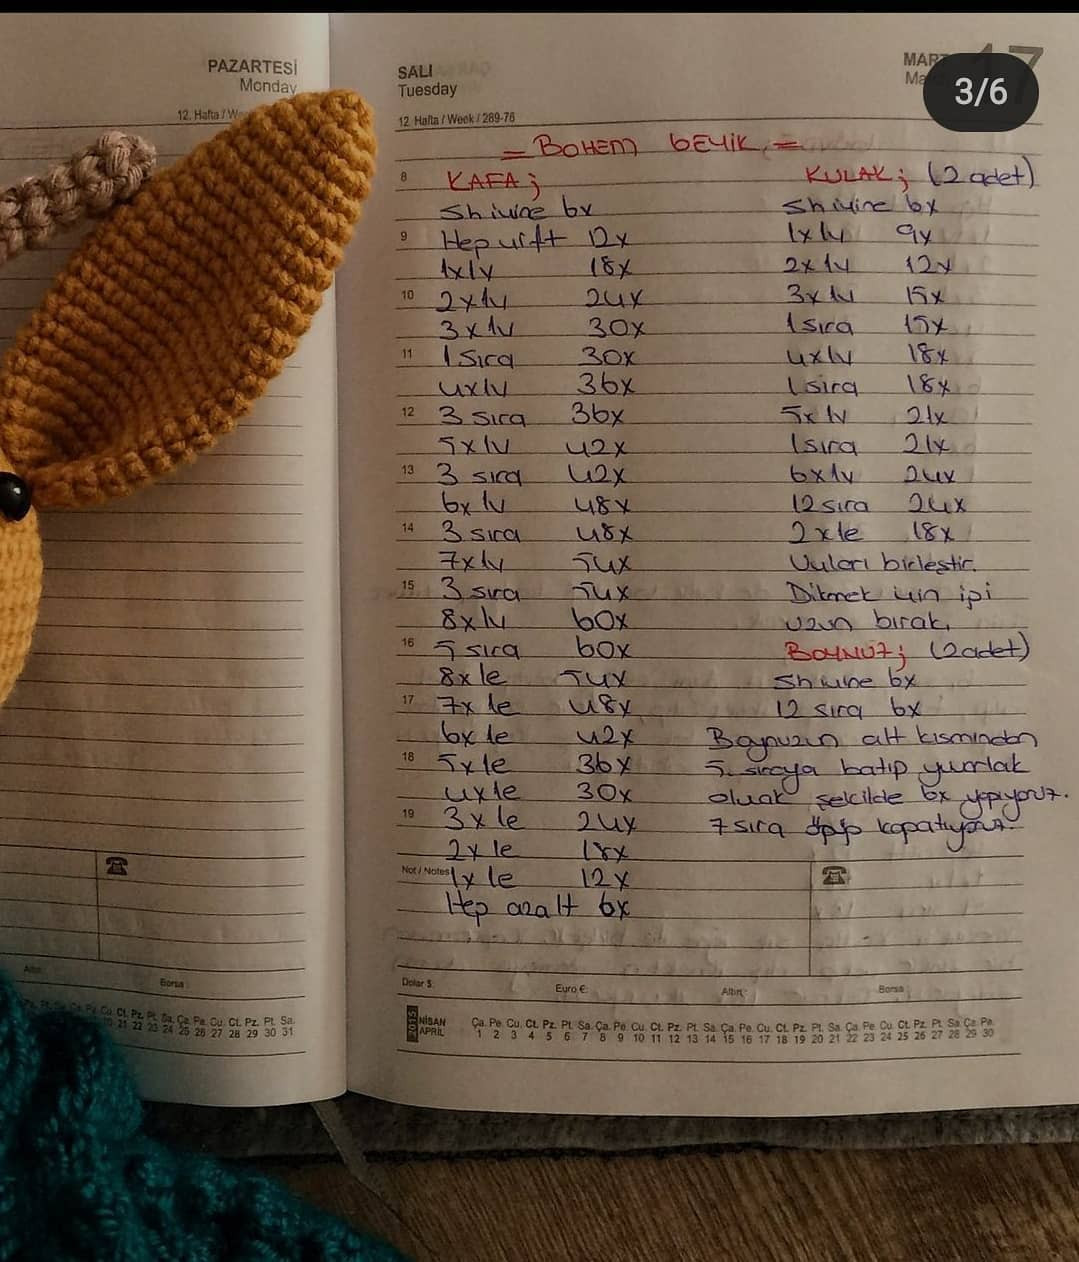 PAZARTESİ
Monday
SALI
Tuesday
3/6
17
12. Hafta / Week / 289-76
= BOHEM GEYİK =
8 KAFA;
Sihirli ne 6x
9 Hep çift 12x
1x1v 18x
10 2x1v 24x
3x1v 30x
11 1 sıra 30x
4x1v 36x
12 3 sıra 36x
5x1v 42x
13 3 sıra 42x
6x1v 48x
14 3 sıra 48x
7x1v 54x
15 3 sıra 54x
8x1v 60x
16 5 sıra 60x
8x1e 54x
17 7x1e 48x
6x1e 42x
18 5x1e 36x
4x1e 30x
19 3x1e 24x
2x1e 18x
Not / Notes 1x1e 12x
Hep azalt 6x
KULAK; (2 adet)
6x
1x1v 9x
2x1v 12x
3x1v 15x
1 sıra 15x
4x1v 18x
1 sıra 18x
5x1v 21x
1 sıra 21x
6x1v 24x
12 sıra 24x
2x1e 18x
Uçları birleştir.
Dikmek için ipi
uzun bırak.
BOYNUZ; (2 adet)
6x
12 sıra 6x
Boynuzun alt kısmından
5. sıraya batıp yuvarlak
olucak şekilde 6x yapıyoruz.
7 sıra örüp kapatıyoruz.
Dolar $:
Euro €:
Altın:
Borsa:
Borsa:
2015
NİSAN
APRIL
Ça. Pe. Cu. Ct. Pz. Pt. Sa. Ça. Pe. Cu. Ct. Pz. Pt. Sa. Ça. Pe. Cu. Ct. Pz. Pt. Sa. Ça. Pe. Cu. Ct. Pz. Pt. Sa. Ça. Pe.
1 2 3 4 5 6 7 8 9 10 11 12 13 14 15 16 17 18 19 20 21 22 23 24 25 26 27 28 29 30